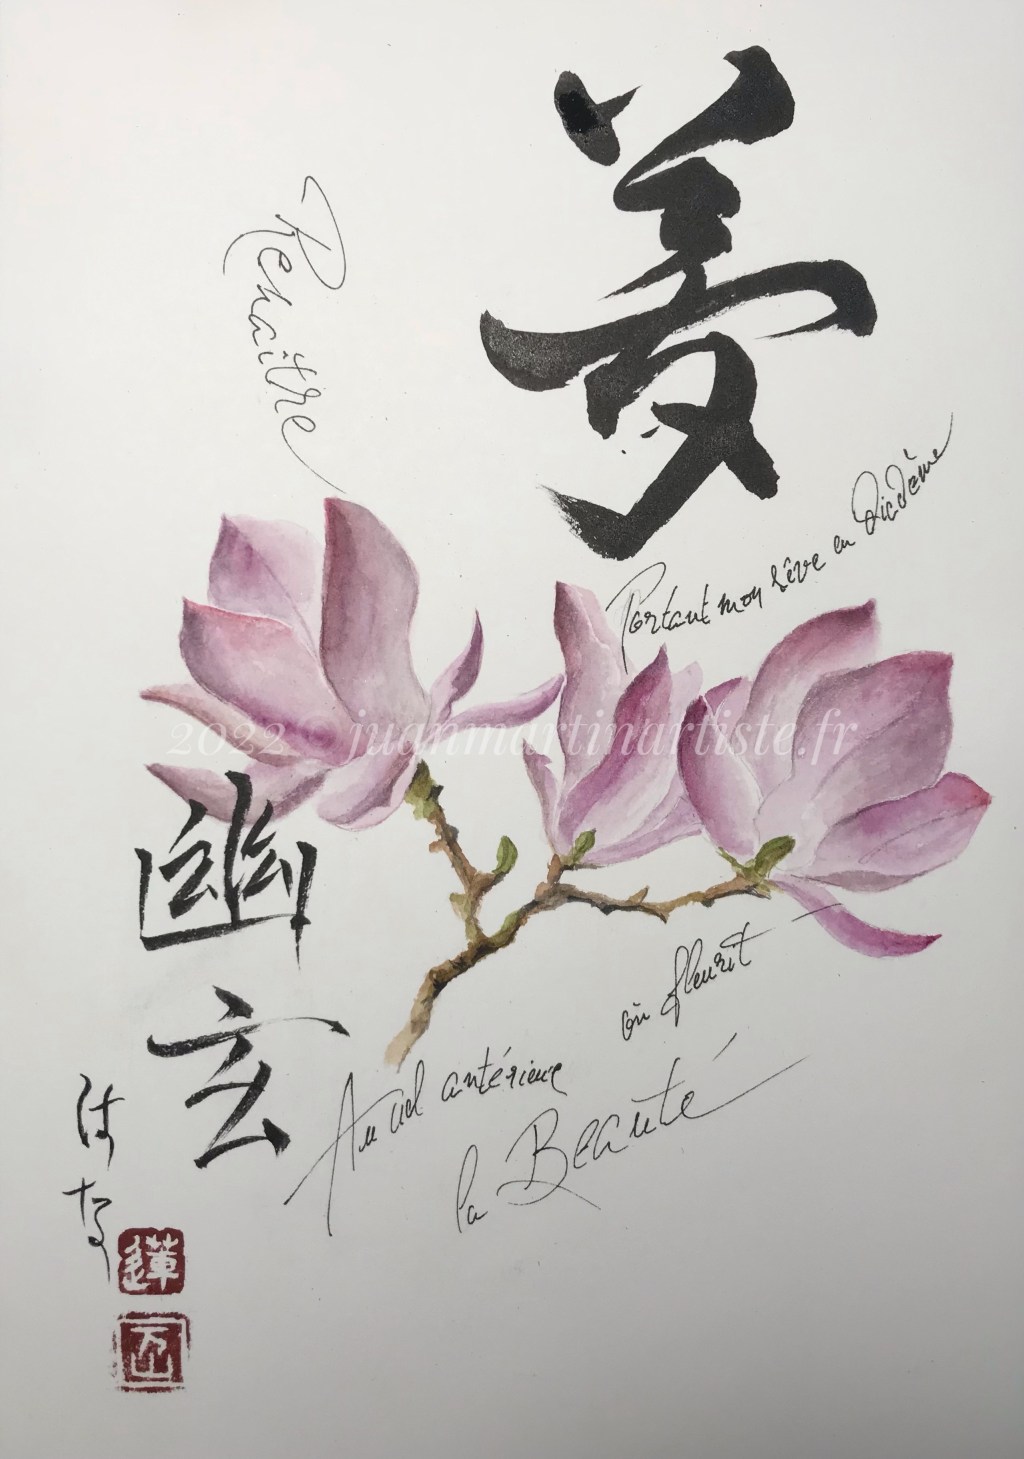 夢
Renaître
Portant mon rêve en Diadème
2022 © juanmartinartiste.fr
幽玄
Au ciel antérieur
où fleurit
la Beauté
蓮